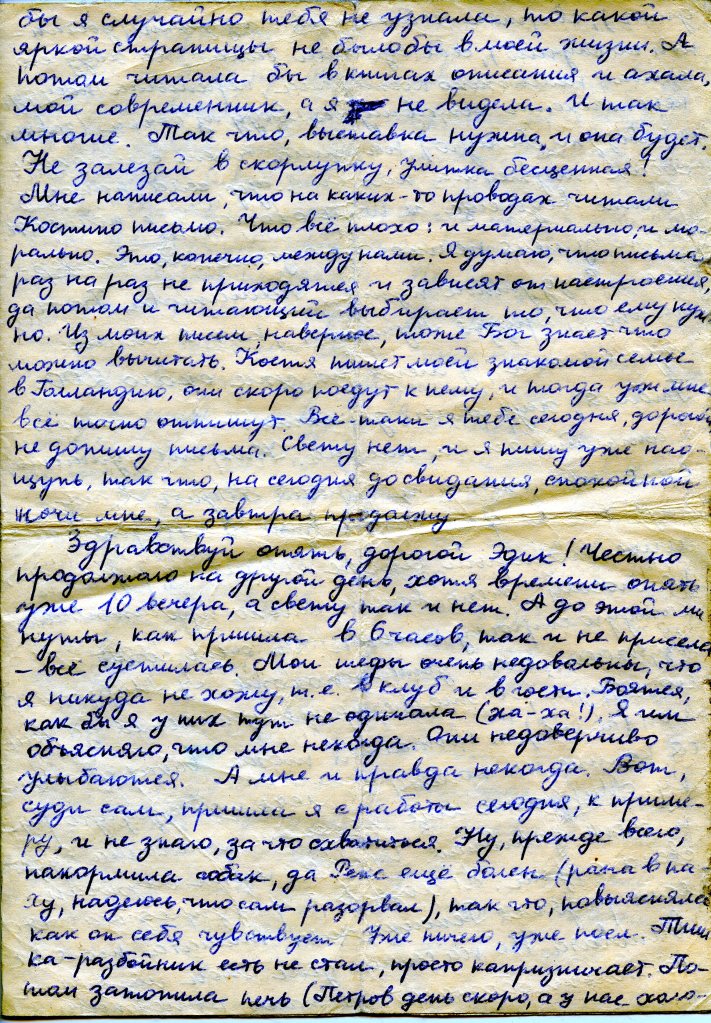 бы я случайно тебя не узнала, то какой
яркой страницы не было бы в моей жизни. А
потом читала бы в книгах описания и ахала,
мой современник, а я не видела. И так
многие. Так что, выставка нужна, и она будет.
Не залезай в скорлупку, улитка бесценная!
Мне написали, что на каких-то проводах читали
Костино письмо. Что всё плохо: и материально, и мо-
рально. Это, конечно, между нами. Я думаю, что письма
раз на раз не приходятся и зависят от настроения,
да потом и читающий выбирает то, что ему нуж
но. Из моих писем, наверное, тоже Бог знает что
можно вычитать. Костя пишет моей знакомой семье
в Голландию, они скоро поедут к нему, и тогда уж мне
всё точно отпишут. Всё-таки я тебе сегодня, дорогой
не допишу письма. Свету нет, и я пишу уже на о-
щупь, так что, на сегодня до свидания, спокойной
ночи мне, а завтра продолжу.
Здравствуй опять, дорогой Эдик! Честно
продолжаю на другой день, хотя времени опять
уже 10 вечера, а свету так и нет. А до этой ми
нуты, как пришла в 6 часов, так и не присела
– всё суетилась. Мои шефы очень недовольны, что
я никуда не хожу, т.е. в клуб и в гости. Боятся,
как бы я у них тут не одичала (ха-ха!). Я им
объясняю, что мне некогда. Они недоверчиво
улыбаются. А мне и правда некогда. Вот,
суди сам, пришла я с работы сегодня, к приме-
ру, и не знаю, за что схватиться. Ну, прежде всего,
накормила собак, да Рекс ещё болен (рана в па-
ху, надеюсь, что сам разорвал), так что, повыясняла
как он себя чувствует. Уже ничего, уже поел. Тиш
ка-разбойник есть не стал, просто капризничает. По-
том затопила печь (Петров день скоро, а у нас холо-